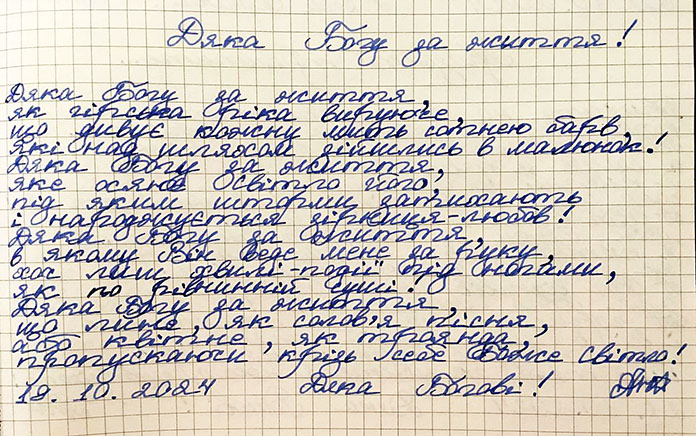 Дяка Богу за життя!
Дяка Богу за життя,
як гірська ріка вируюче,
що дивує кожну мить сотнею барв,
які над шляхом зійшлись в малюнок!
Дяка Богу за життя,
яке осяне світло його,
під яким шторми затихають
і народжується зірниця-любов!
Дяка Богу за життя,
в якому Він веде мене за руку,
хоч лиш хвилі-події під ногами,
як по рівнинній суші!
Дяка Богу за життя,
що лине, як солов'я пісня,
або квітне, як троянда,
пропускаючи крізь себе Боже світло!
19.10.2024 Дяка Богові!